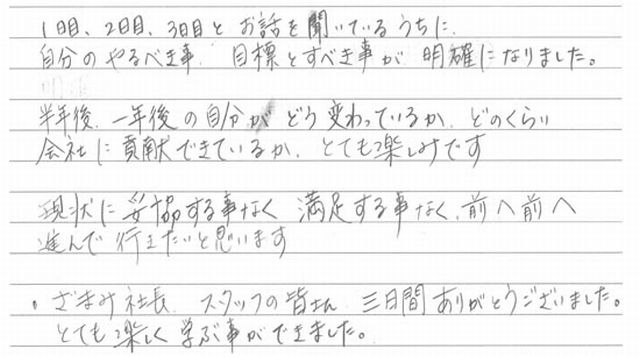 1日目、2日目、3日目と お話を聞いているうちに、
自分のやるべき事、目標とすべき事が 明確になりました。
半年後、一年後の自分が どう変わっているか、どのくらい
会社に貢献できているか、とても楽しみです
現状に妥協する事なく 満足する事なく、前へ前へ
進んで行きたいと思います
。ざまみ社長、スタッフの皆さん 三日間ありがとうございました。
とても楽しく学ぶ事ができました。